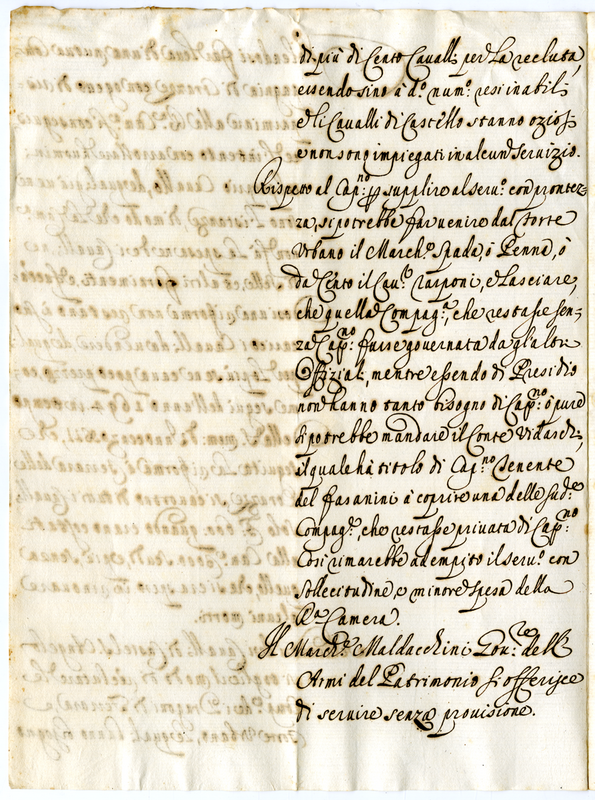 di più di Cento Cavalli per la recluta,
essendo sino à d.º num.º resi inabili,
e li Cavalli di Castello stanno oziosi
e non sono impiegati in alcun servizio.
Rispetto al Cap.no p supplire al serv.º con prontez=
za, si potrebbe far venire dal Forte
Urbano il March.e Spada, ò Penna, ò
da Cento il Cav.re Rasponi, e lasciare,
che quella Compag.a, che restasse sen=
za Cap.no: fusse governata da gl'altri
Offiziali, mentre essendo di Presidio
non hanno tanto bisogno di Cap.no: ò pure
si potrebbe mandare il Conte Vidaschi,
il quale hà titolo di Cap.no Tenente
del Fasanini à coprire una delle sud.e
Compag.e, che restasse privata di Cap.no:
Così rimarebbe adempito il serv.º con
sollecitudine, e minore spesa della
R.a Camera.
Il March.e Maldachini Gov.re delle
Armi del Patrimonio si offerisce
di servire senza provisione.